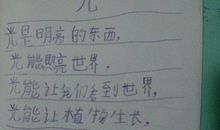 光
光是明亮的东西，
光能照亮世界，
光能让我们看到世界，
光能让植物生长。